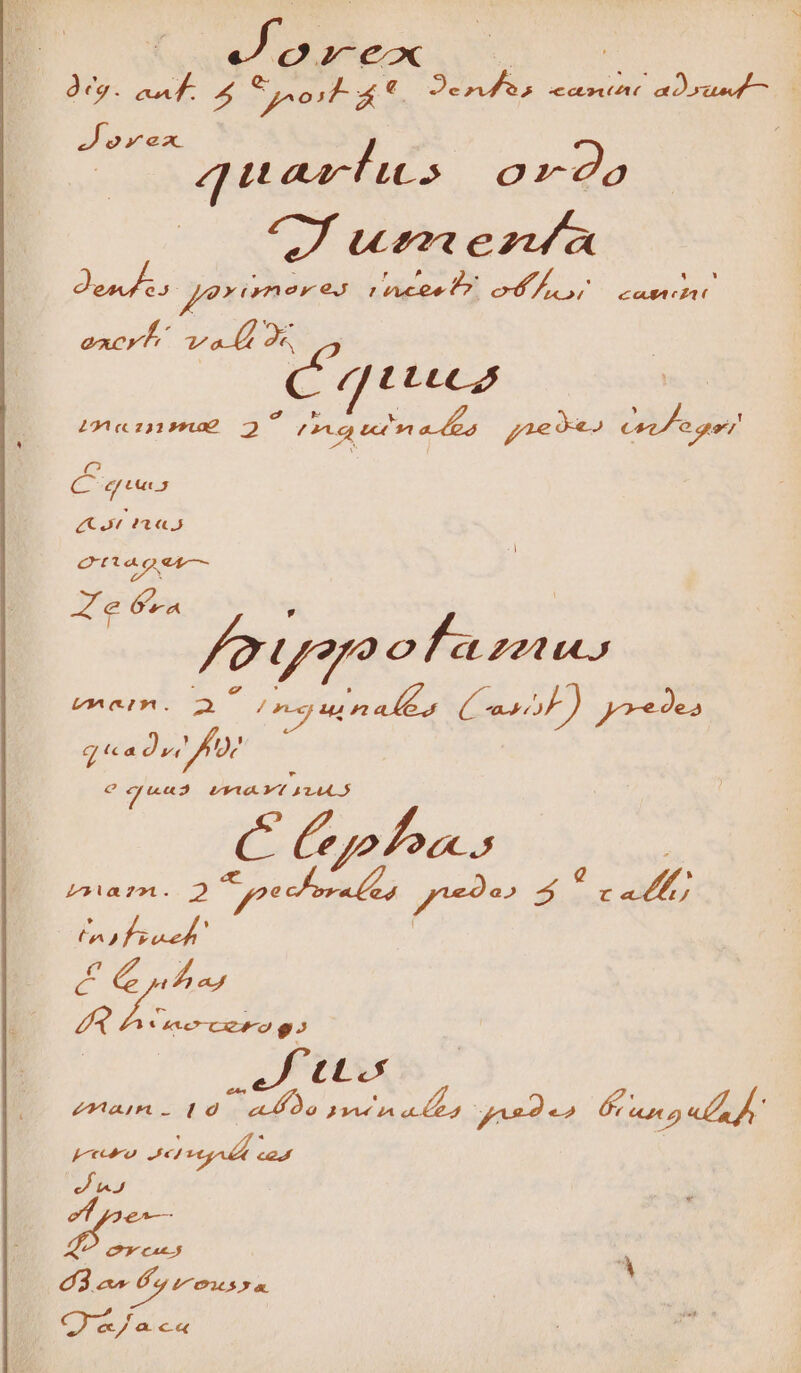 Sorex
dig. ant. 5e post 5e Dentes canini adsunt
Sorex
quartus ordo
Jumenta
dentes primores incerti obtusi canini
exerti validi
Equus
mammæ 2e inguinales pedes integri
Equus
asinus
onager
Zebra
hippotamus
mam. 2e inguinales (arist) pedes
quadrifidi
equus marinus
Elephas
mam. 2e pectorales pedes 5e callis
instructi
Elephas
Rhinoceros
Sus
mam. 10em abdominales pedes biungulati
raro simplices
Sus
Aper
Porcus
Barbyroussa
Tajacu